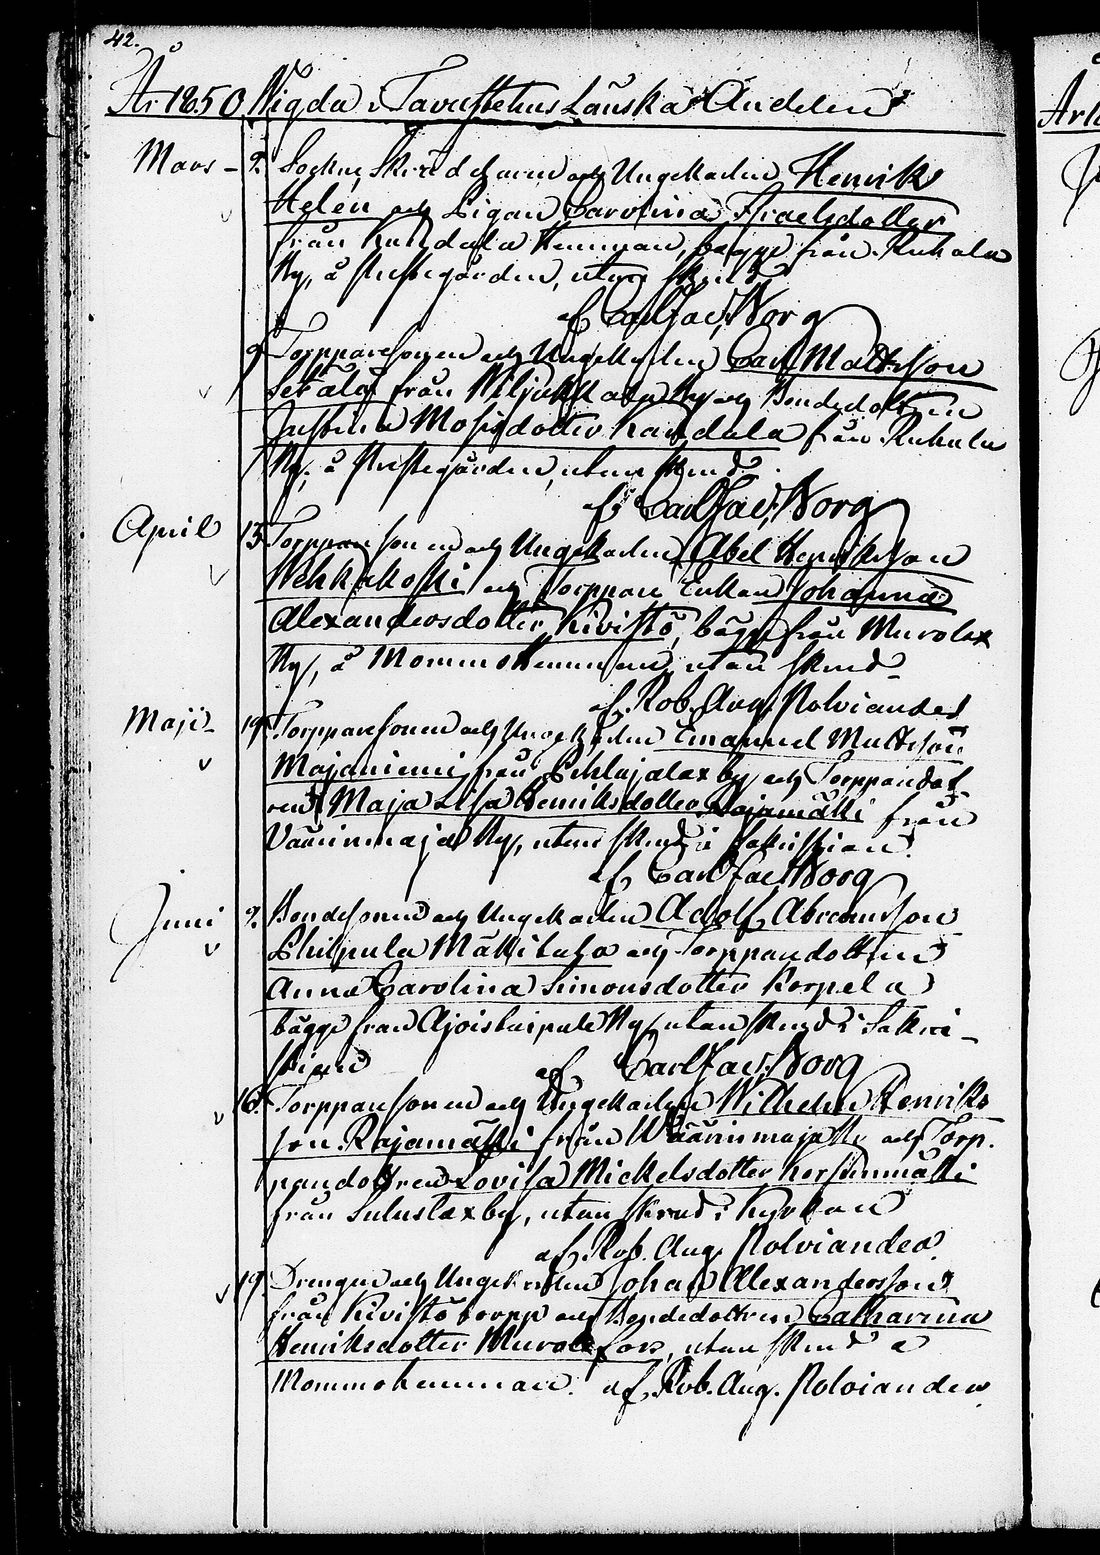 42.
År 1850 Vigda i Tavastehus Länska Andelen
Mars - 9. Sockne Skräddaren och Ungekarlen Henrik
Helén och Pigan Carolina Israelsdotter
från Kandala Hemman, bägge från Ruhala
By, å Prestegården, utan skrud
af Carl Jac. Norg
9. Torpparesonen och Ungekarlen Carl Mattsson
Setälä från By och Bondedottren
Justina Mosisdotter Kandala från Ruhala
By, å Prestegården, utan skrud
af Carl Jac. Norg
April 13. Torpparesonen och Ungekarlen Abel Henriksson
Wehkakoski och Torppare Enkan Johanna
Alexandersdotter Kivistö, bägge från Murolax
By, å Mommo Hemman, utan skrud
af Rob. Aug. Rolviander
Maji 19. Torpparesonen och Ungekarlen Emanuel Mattsson
Majaniemi från by och Torppandot-
ren Maja Lisa Henriksdotter Rajamäki från
Väärinmaja By, utan skrud i Sakristian
af Carl Jac. Norg
Juni 9. Bondesonen och Ungekarlen Adolf Abramsson
Mäkitalo och Torppandottren
Anna Carolina Simonsdotter Korpela
bägge från By utan skrud i Sakri-
stian af Carl Jac. Norg
16. Torpparesonen och Ungekarlen Wilhelm Henriks
son Rajamäki från Väärinmaja By och Torp-
pandottren Lovisa Mickelsdotter
från by, utan skrud i Kyrkan
af Rob. Aug. Rolviander
19. Drengen och Ungekarlen Johan Alexandersson
från Kivistö torpp och Bondedottren Catharina
Henriksdotter utan skrud å
Mommohemman. af Rob. Aug. Rolviander
År